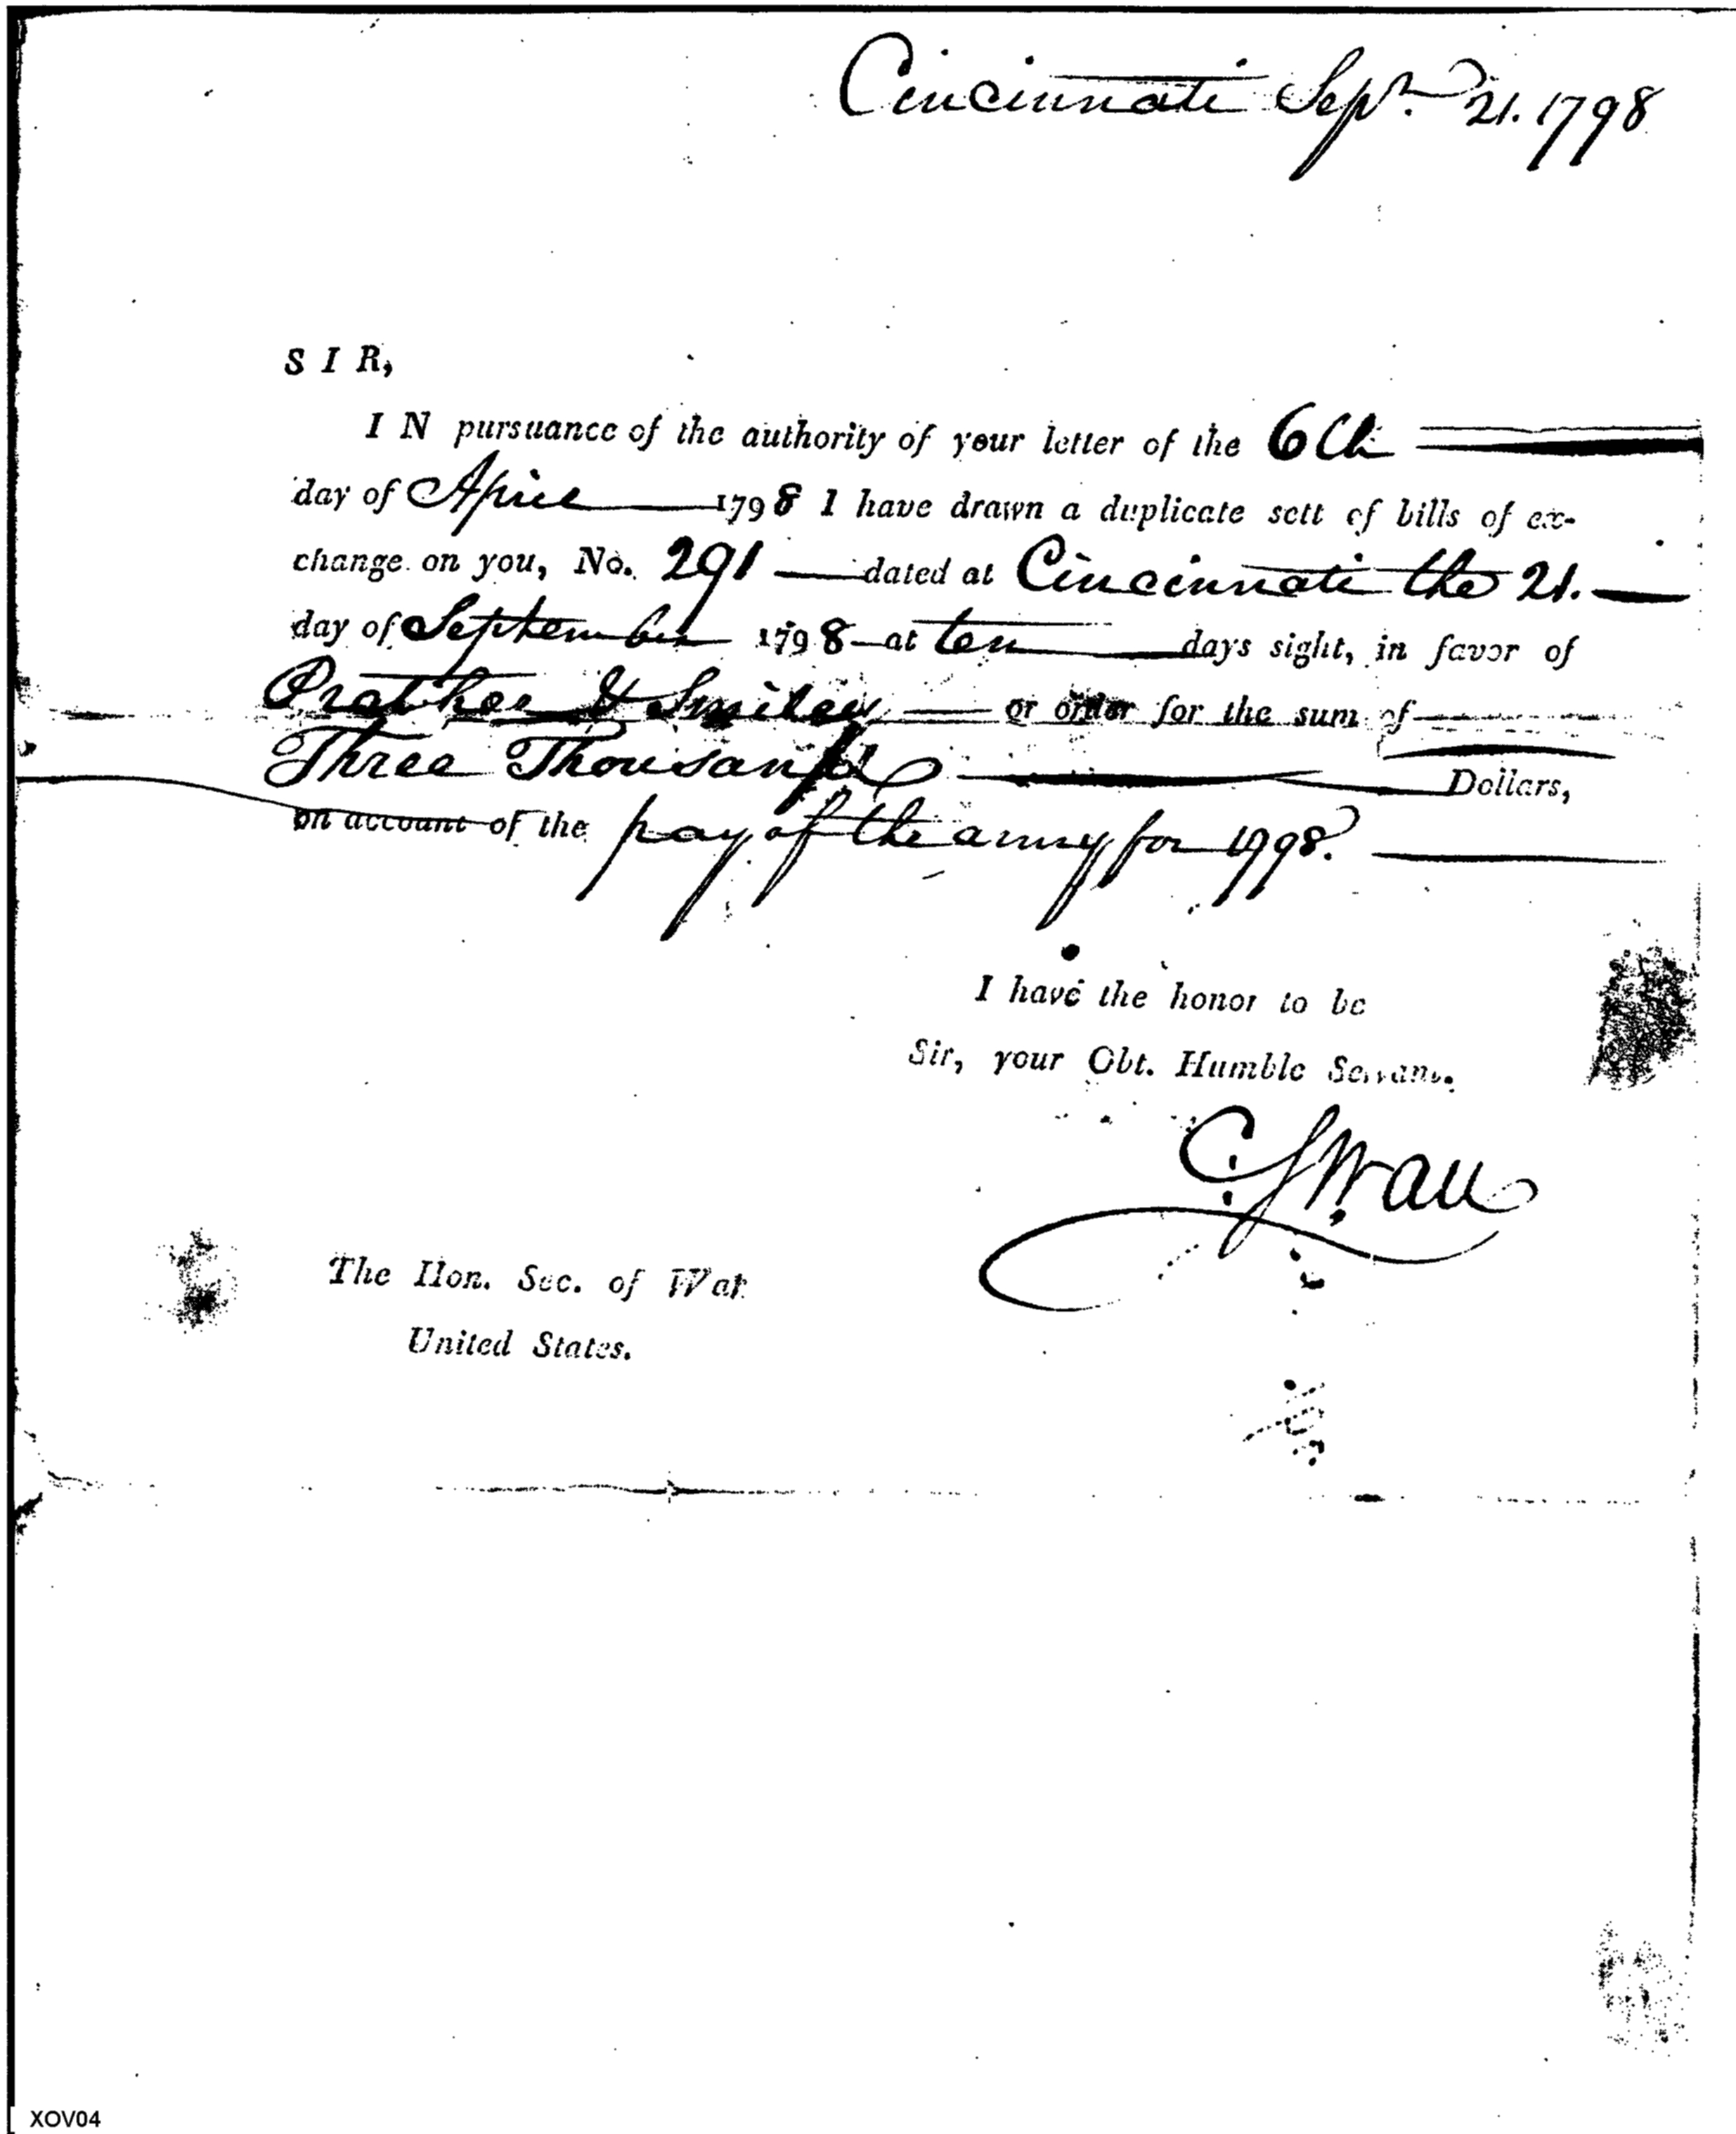 Cincinnati Sept. 21. 1798
SIR,
IN pursuance of the authority of your letter of the 6th
day of April 1798 I have drawn a duplicate sett of bills of ex-
change on you, No. 291 dated at Cincinnati the 21.
day of September 1798 at ten days sight, in favor of
Prather & Smiley or order for the sum of
Three Thousand Dollars,
on account of the pay of the army for 1798.
I have the honor to be
Sir, your Obt. Humble Servant.
C. Swan
The Hon. Sec. of War
United States.
XOV04